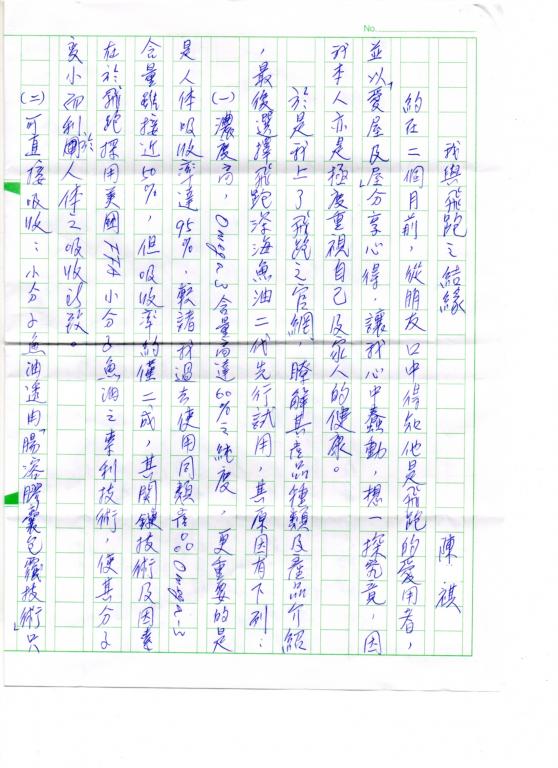 No.
我與飛跑之結緣
陳祺
約在二個月前，從朋友口中得知他是飛跑的愛用者，
並以「愛屋及屋」分享心得，讓我心中蠢動，想一探究竟，因
我本人亦是極度重視自己及家人的健康。
於是我上了飛跑之官網，瞭解其產品種類及產品介紹
，最後選擇飛跑深海魚油二代先行試用，其原因有下列：
(一)濃度高，Omega-3含量高達60%之純度，更重要的是
是人体吸收率達95%，較諸我過去使用同類產品Omega-3
含量雖接近50%，但吸收率約僅二成，其関鍵技術及因素
在於飛跑採用美國FFA小分子魚油之專利技術，使其分子
變小而利於人体之吸收所致。
(二)可直接吸收：小分子魚油透由「腸溶膠囊包覆技術」只